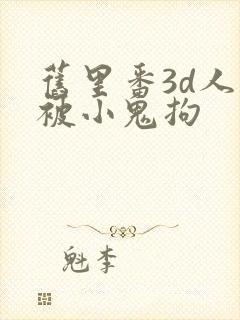 舊里番3d人
被小鬼拘
魁李